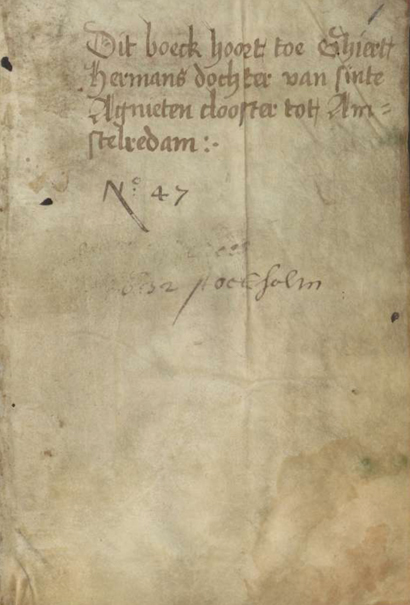 Dit boeck hoort toe Ghiertt
Hermans dochter van sinte
Agnieten clooster tott Am=
stelredam :-
No. 47
stockholm